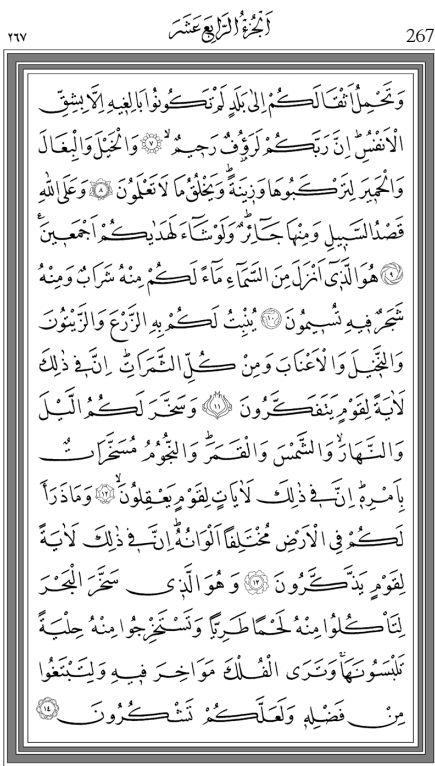 ٢٦٧ اَلْجُزْءُ الرَّابِعَ عَشَرَ 267
وَتَحْمِلُ اَثْقَالَكُمْ اِلٰى بَلَدٍ لَمْ تَكُونُوا بَالِغٖيهِ اِلَّا بِشِقِّ
الْاَنْفُسِۜ اِنَّ رَبَّكُمْ لَرَؤُفٌ رَحٖيمٌۙ ﴿٧﴾ وَالْخَيْلَ وَالْبِغَالَ
وَالْحَمٖيرَ لِتَرْكَبُوهَا وَزٖينَةًۜ وَيَخْلُقُ مَا لَا تَعْلَمُونَ ﴿٨﴾ وَعَلَى اللّٰهِ
قَصْدُ السَّبٖيلِ وَمِنْهَا جَٓائِرٌۜ وَلَوْ شَٓاءَ لَهَدٰيكُمْ اَجْمَعٖينَ۟
﴿٩﴾ هُوَ الَّذٖٓى اَنْزَلَ مِنَ السَّمَٓاءِ مَٓاءً لَكُمْ مِنْهُ شَرَابٌ وَمِنْهُ
شَجَرٌ فٖيهِ تُسٖيمُونَ ﴿١٠﴾ يُنْبِتُ لَكُمْ بِهِ الزَّرْعَ وَالزَّيْتُونَ
وَالنَّخٖيلَ وَالْاَعْنَابَ وَمِنْ كُلِّ الثَّمَرَاتِۜ اِنَّ فٖى ذٰلِكَ
لَاٰيَةً لِقَوْمٍ يَتَفَكَّرُونَ ﴿١١﴾ وَسَخَّرَ لَكُمُ الَّيْلَ
وَالنَّهَارَۙ وَالشَّمْسَ وَالْقَمَرَۜ وَالنُّجُومُ مُسَخَّرَاتٌ
بِاَمْرِهٖۜ اِنَّ فٖى ذٰلِكَ لَاٰيَاتٍ لِقَوْمٍ يَعْقِلُونَۙ ﴿١٢﴾ وَمَا ذَرَاَ
لَكُمْ فِى الْاَرْضِ مُخْتَلِفًا اَلْوَانُهُۜ اِنَّ فٖى ذٰلِكَ لَاٰيَةً
لِقَوْمٍ يَذَّكَّرُونَ ﴿١٣﴾ وَهُوَ الَّذٖى سَخَّرَ الْبَحْرَ
لِتَاْكُلُوا مِنْهُ لَحْمًا طَرِيًّا وَتَسْتَخْرِجُوا مِنْهُ حِلْيَةً
تَلْبَسُونَهَاۚ وَتَرَى الْفُلْكَ مَوَاخِرَ فٖيهِ وَلِتَبْتَغُوا
مِنْ فَضْلِهٖ وَلَعَلَّكُمْ تَشْكُرُونَ ﴿١٤﴾